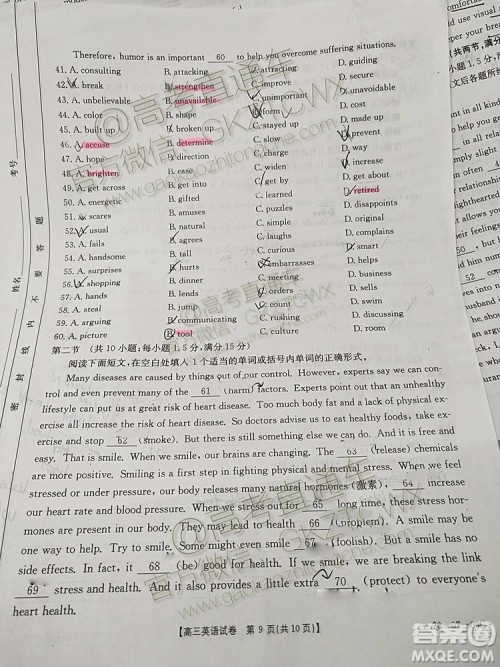 Therefore, humor is an important 60 to help you overcome suffering situations.
41. A. consulting B. attacking D. guiding
42. A. break B. strengthen C. improve D. guard
43. A. unbelievable B. unavailable C. unimportant D. unavoidable
44. A. color B. shape C. form D. cover
45. A. built up B. broken up C. stayed up D. made up
46. A. accuse B. determine C. slow D. prevent
47. A. hope B. direction C. charge D. way
48. A. brighten B. ease C. widen D. increase
49. A. get across B. get into C. get by D. get about
50. A. energetic B. gifted C. learned D. retired
51. A. scares B. amuses C. puzzles D. disappoints
52. A. usual B. natural C. simple D. original
53. A. fails B. agrees C. laughs D. complains
54. A. handsome B. silly C. curious D. smart
55. A. surprises B. hurts C. embarrasses D. helps
56. A. shopping B. dinner C. meeting D. business
57. A. hands B. lends D. sends
58. A. steal B. jump C. count D. follow
59. A. arguing B. communicating C. rushing D. driving
60. A. picture B. tool C. culture D. room
第二节 (共10小题;每小题1.5分,满分15分)
阅读下面短文,在空白处填入1个适当的单词或括号内单词的正确形式。
Many diseases are things out of our control. However, experts say we can con-
trol and even prevent many of the 61 (harm) factors. Experts point out an unhealthy
lifestyle can put us at great risk of heart disease. Too much body fat and too little ex-
ercise all increase the risk of heart disease. So doctors advise us to eat healthy foods, take
exercise and stop 62 (smoke). But they also tell us to do something else that is very
easy. That is smile. When we smile, our brains are changing. The 63 (release) chemicals
are more positive. Smiling is a first step in fighting physical and mental stress. When under
stress or pressure, our body releases many natural hormones (激素), 64 increase
our heart rate and blood pressure. When we stress out for 65 long time, these stress hor-
mones are present in our body. They may lead to health 66 (problem). Try to smile, even
if you are not happy. Try to smile, even it might seem 67 (foolish). But a smile has no
side effects. In fact, it 68 (be) free. If we smile, we are breaking the link
69 stress and health. And it also provides a little extra 70 (protect) to everyone's
heart health.
【高三英语试卷 第9页(共10页)】
考号
姓名
密 封 线 内 不 要 答 题
答案圈
MXQE.COM